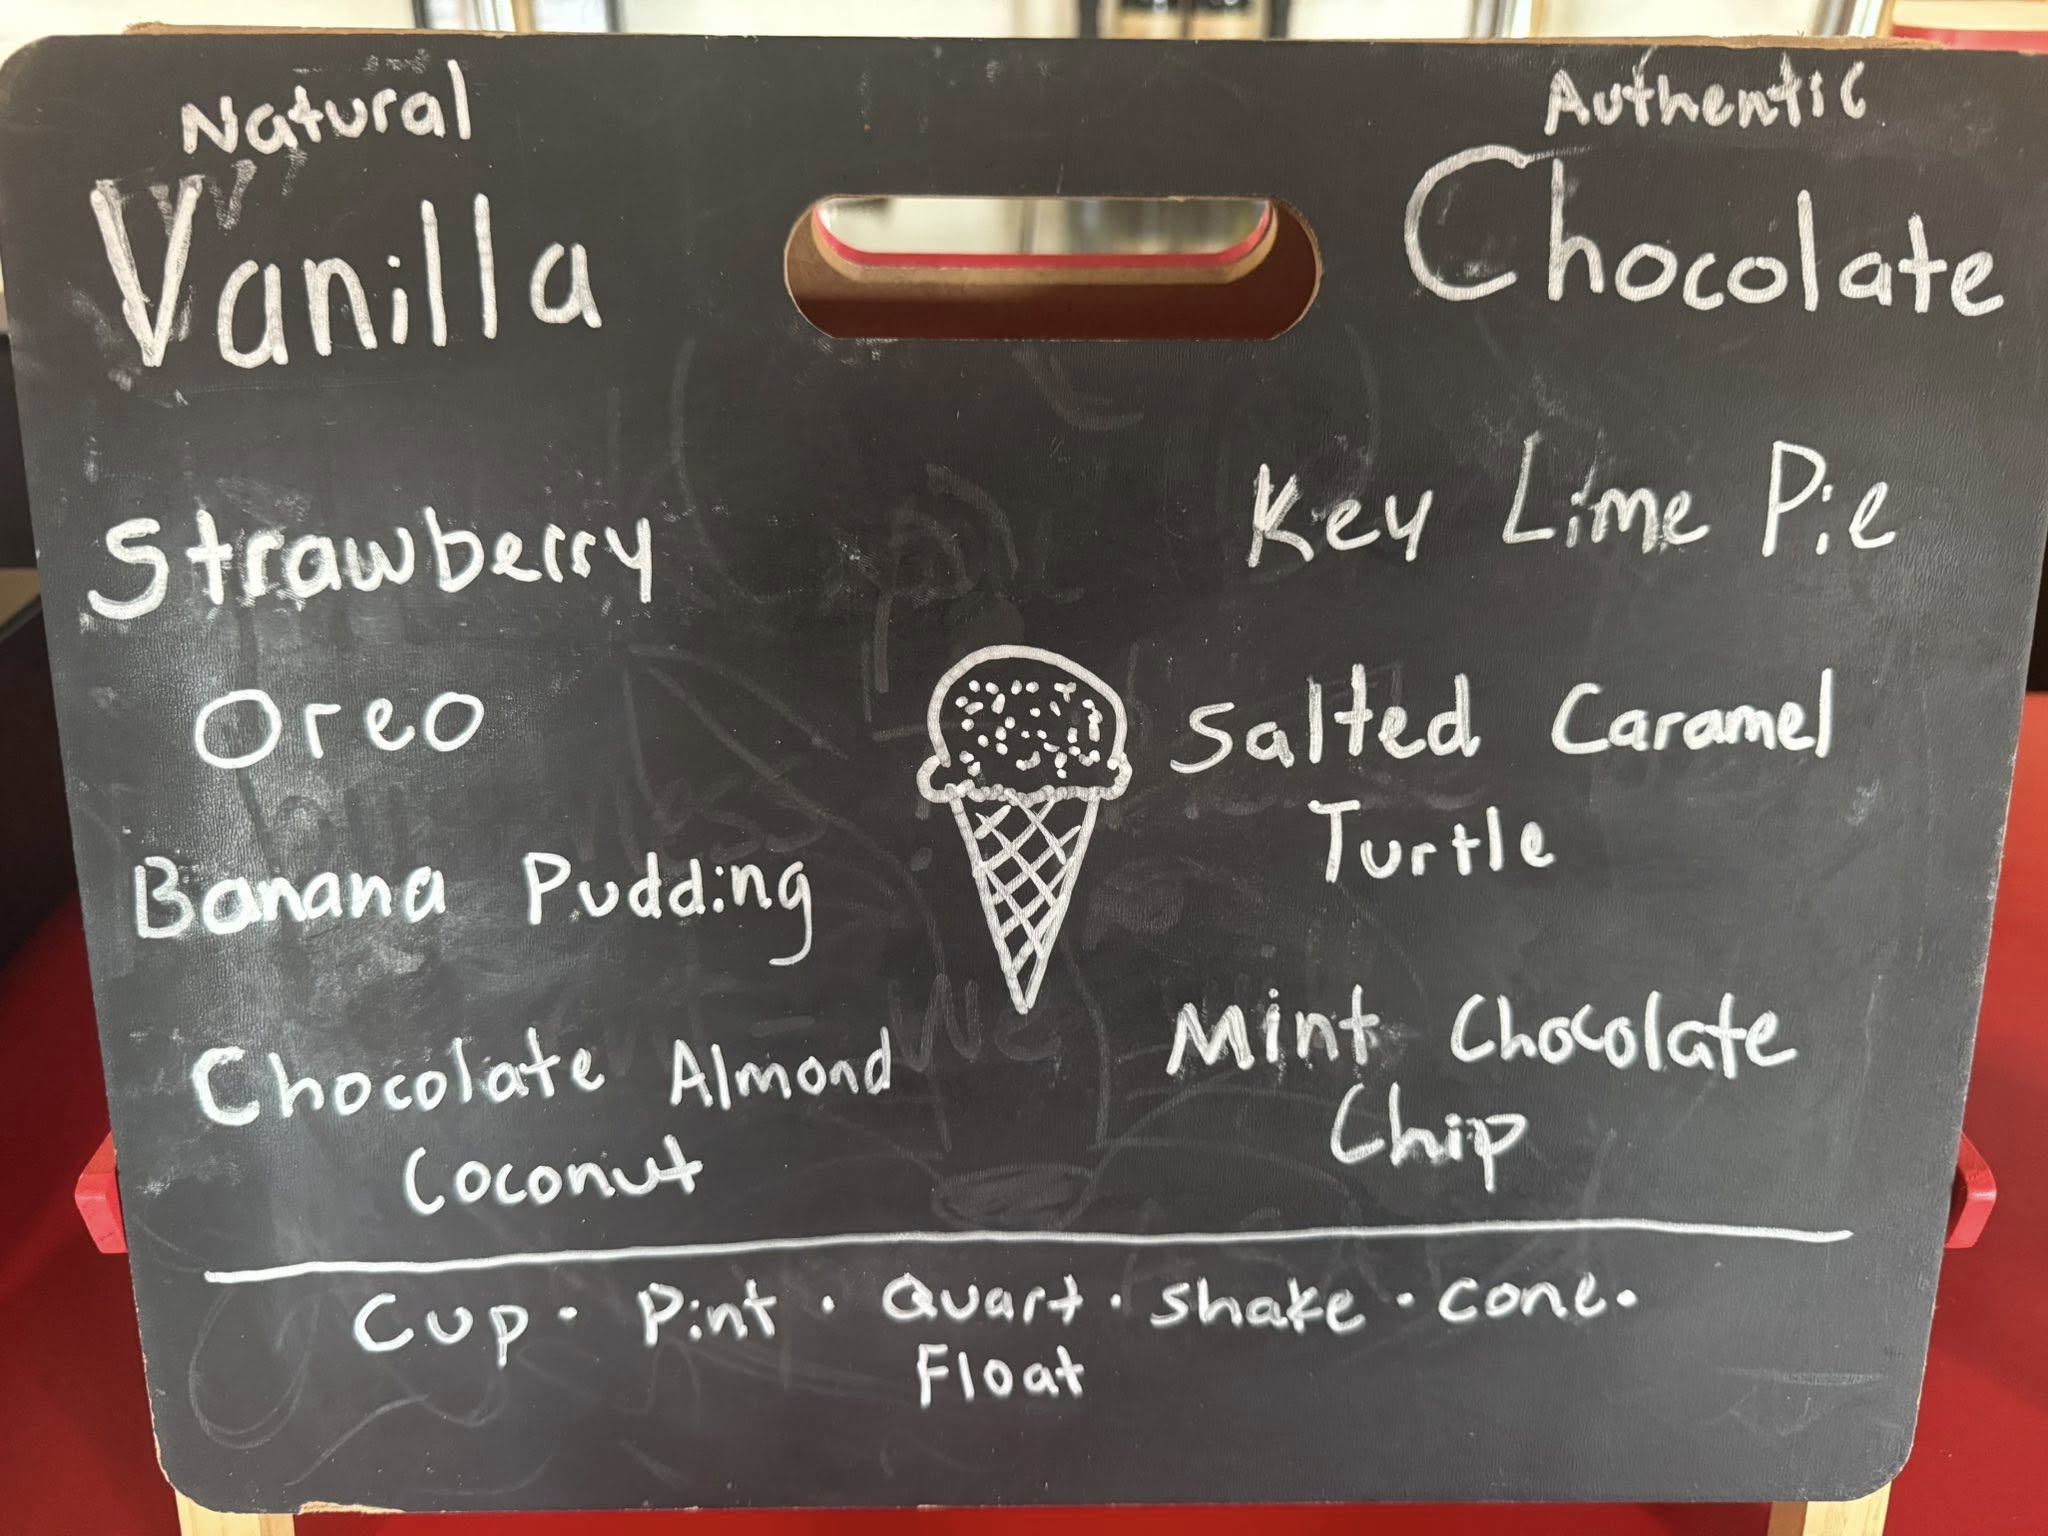 Natural
Vanilla
Strawberry
Oreo
Banana Pudding
Chocolate Almond
Coconut
Authentic
Chocolate
Key Lime Pie
Salted Caramel
Turtle
Mint Chocolate
Chip
Cup · Pint · Quart · Shake · Cone.
Float